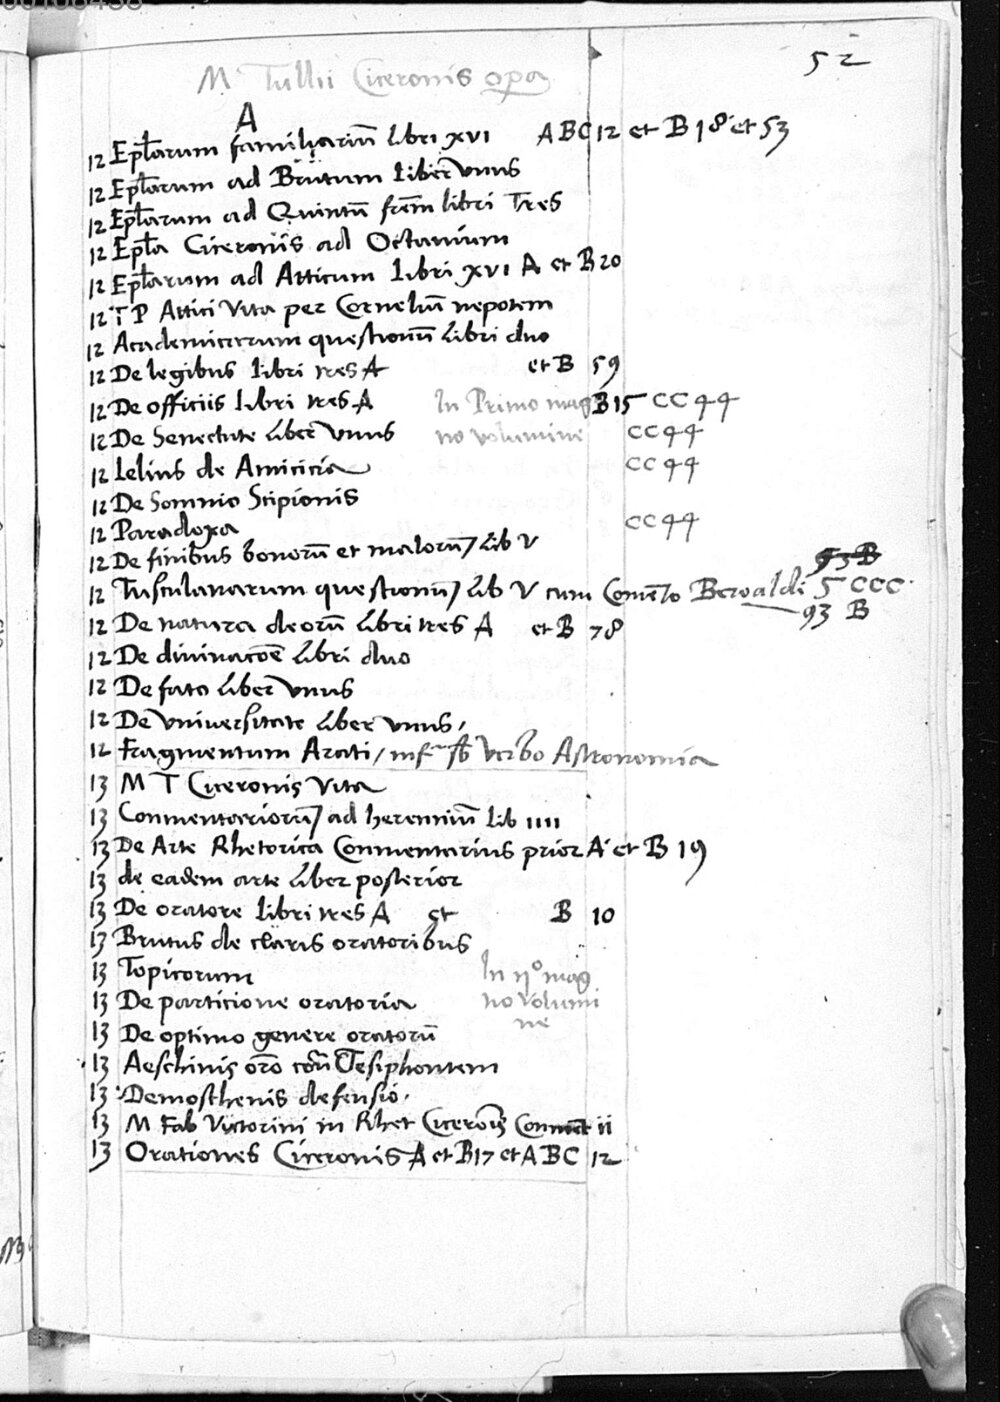 52
M Tullii Ciceronis opa
A
12 Eplarum familiariũ libri xvi ABC 12 et B 18 et 53
12 Eplarum ad Brutum liber vnus
12 Eplarum ad Quintũ frem libri Tres
12 Epla Ciceronis ad Octauium
12 Eplarum ad Atticum libri xvi A et B 20
12 T P Attici Vita per Corneliũ nepotem
12 Academicorum questionũ libri duo
12 De legibus libri tres A et B 59
12 De officiis libri tres A In Primo mag B 15 CC 44
12 De Senectute liber vnus no volumine CC 44
12 Lelius de Amicicia CC 44
12 De Somnio Scipionis
12 Paradoxa CC 44
12 De finibus bonorũ et malorũ/ lib V
53 B
12 Tusculanarum questionũ/ lib V cum Comento Beroaldi 5 CCC
93 B
12 De natura deorũ libri tres A et B 78
12 De diuinacõe libri duo
12 De fato liber vnus
12 De vniuersitate liber vnus/
12 Fragmentum Arati/ infra sb verbo Astronomia
13 M T Ciceronis Vita
13 Commentariorũ/ ad herenniũ lib iiii
13 De Arte Rhetorica Commentarius prior A et B 19
13 de eadem arte liber posterior
13 De oratore libri tres A et B 10
13 Brutus de claris oratoribus
13 Topicorum In iio mag
13 De particione oratoria no volumi
ne
13 De optimo genere oratorũ
13 Aeschinis orõ cõn Ctesiphontem
13 Demosthenis defensio
13 M Fab Victorini in Rhet Ciceronis Comment ii
13 Orationes Ciceronis A et B 17 et ABC 12